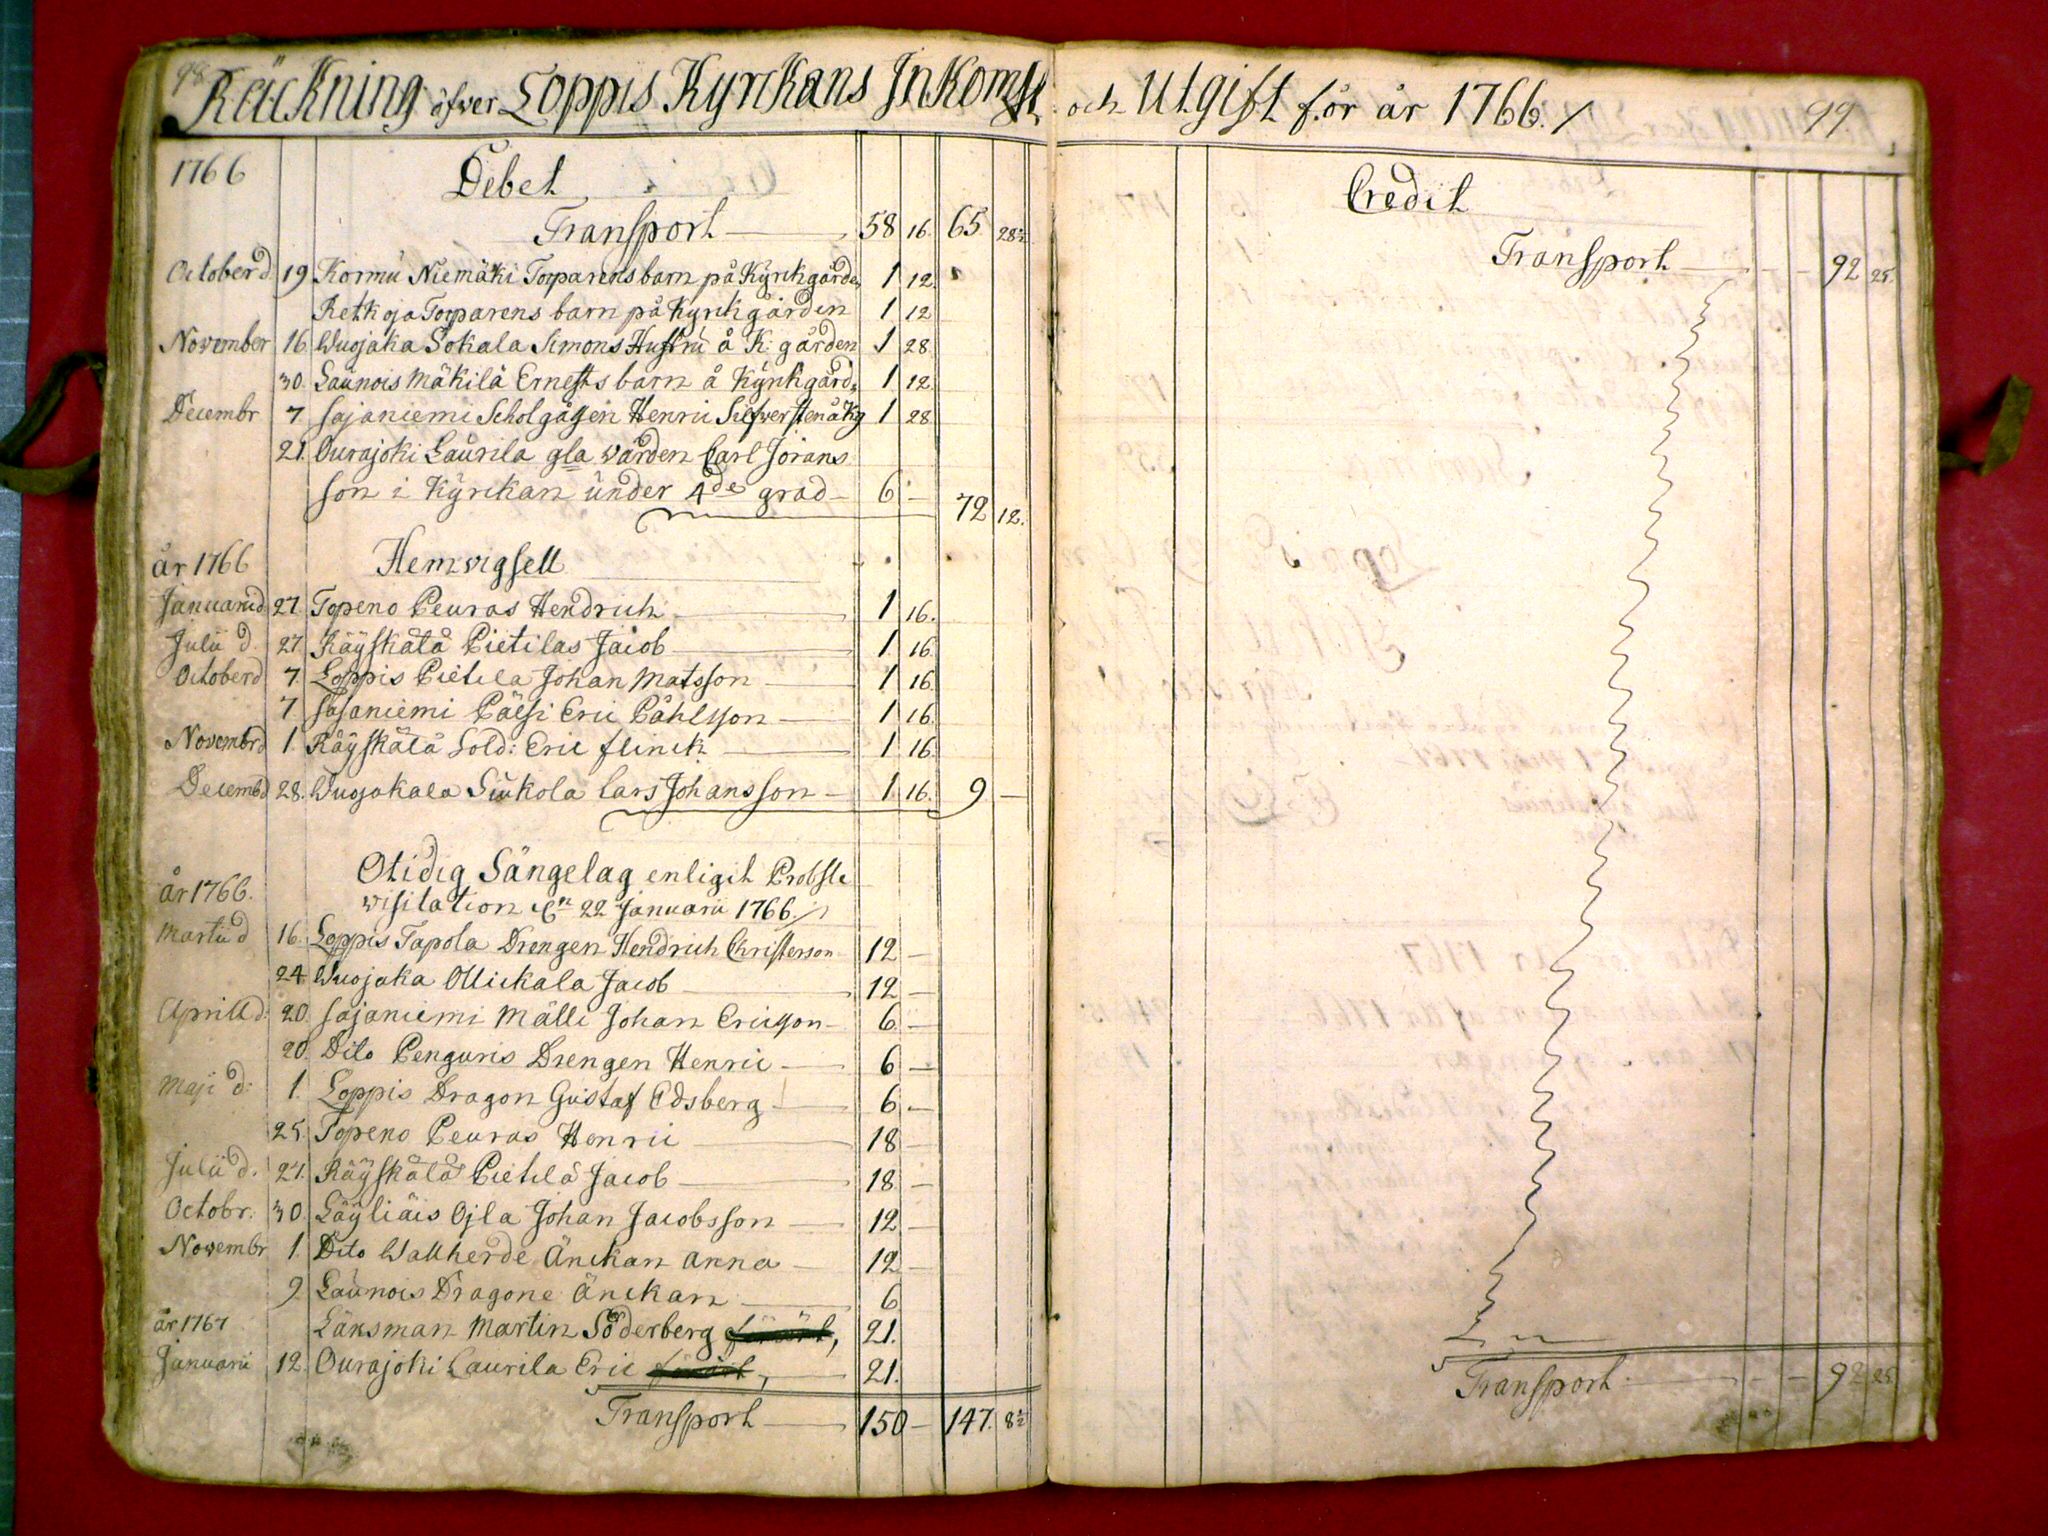 98.
Räckning öfver Loppis Kyrckans Inkomst och Utgift för år 1766./.
99.
1766 Debet
Transport 58 16. 65 28½
October d 19 Kormu Niemäki Torparens barn på Kyrckgården 1 12.
Retkoja Torparens barn på Kyrckgården 1 12
November 16. Wuojaka Sokala Simons Hustru å K: gården 1 28.
30. Launois Mäkilä Ernests barn å Kyrckgård. 1 12.
Decembr 7 Sajaniemi Scholgåssen Henric Silfversten å Kg 1 28
21. Ourajoki Laurila gla Värden Carl Jörans
son i Kyrckan under 4de grad 6 — 72 12.
år 1766 Hemvigsell
Januarii d 27. Topeno Peuras Hendrich 1 16.
Julii d. 27. Räyskälä Pietilas Jacob 1 16.
October d 7. Loppis Pietila Johan Matsson 1 16.
7. Sajaniemi Pälsi Eric Påhlsson 1 16.
Novembr d 1. Räyskälä Sold: Eric Flinck 1 16.
Decemb d 28. Wuojakala Siukola Lars Johansson 1 16. 9 —
Otidig Sängelag enligit Probste
år 1766. visitation den 22 Januarii 1766./.
Martii d 16. Loppis Tapola Drengen Hendrich Christerson 12 —
24 Wuojaka Ollickala Jacob 12 —
Aprill d: 20. Sajaniemi Mälli Johan Ericsson 6 —
20. Dito Penguris Drengen Henric 6 —
Maji d: 1. Loppis Dragon Gustaf Edsberg 6 —
25. Topeno Peuras Henric 18 —
Julii d. 27. Räyskälä Pietilä Jacob 18 —
Octobr: 30. Läyliäis Ojla Johan Jacobsson 12 —
Novembr 1. Dito Wallherde Änckan Anna 12 —
9. Launois Dragone Änckan 6
år 1767 Länsman Martin Söderberg 21.
Januarii 12. Ourajoki Laurila Eric 21.
Transport 150 — 147. 8½
Credit
Transport 92 25.
Transport 92 25.